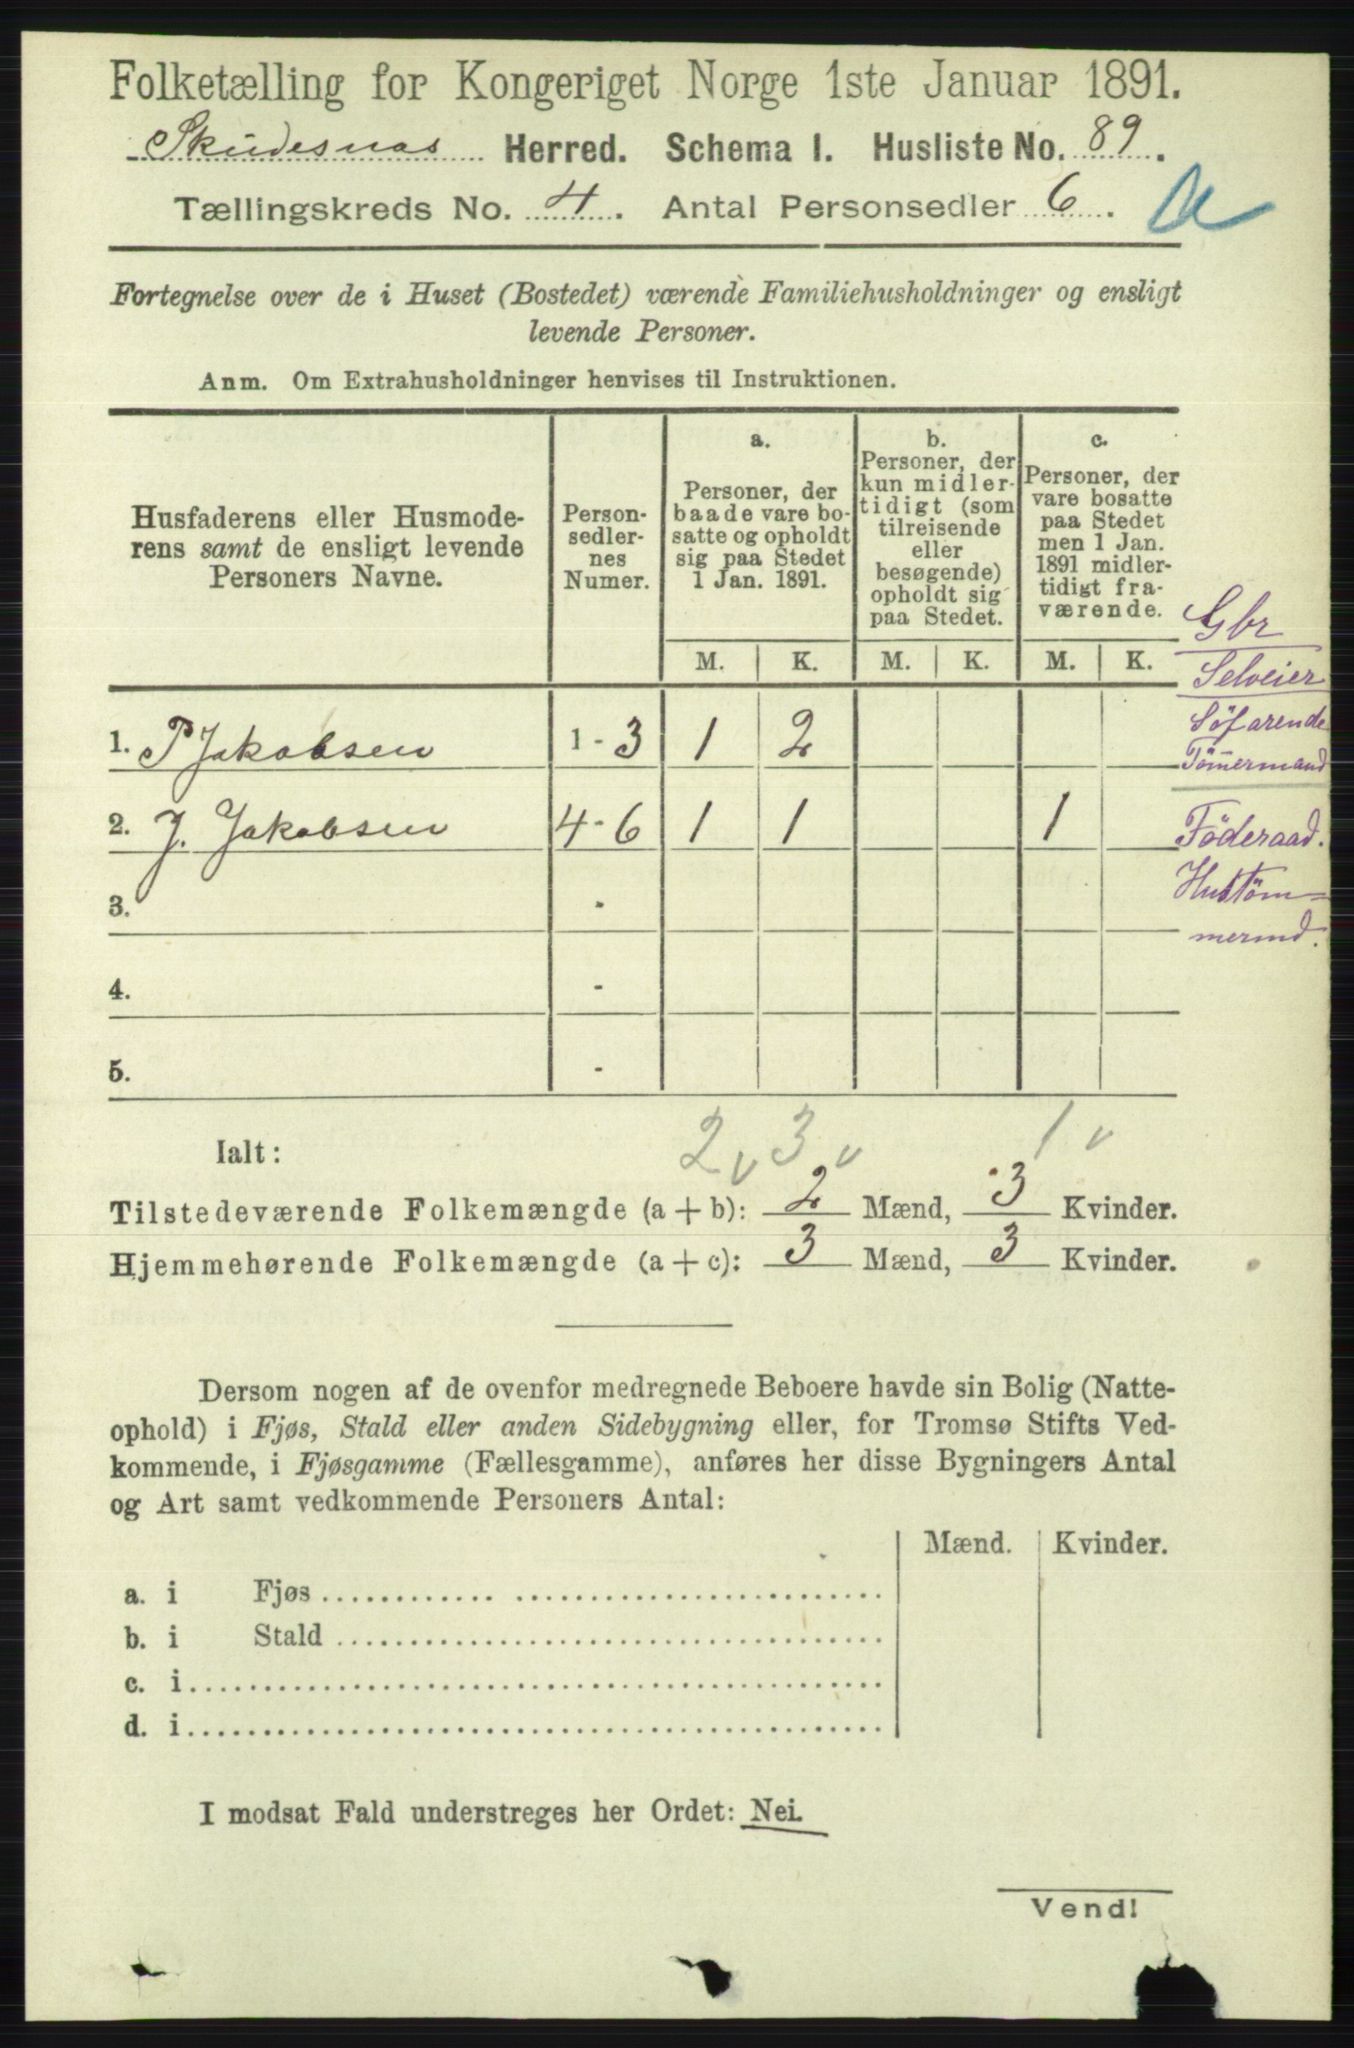 Folketælling for Kongeriget Norge 1ste Januar 1891.
Skudesnæs Herred. Schema I. Husliste No. 89.
Tællingskreds No. 4. Antal Personsedler 6.
Fortegnelse over de i Huset (Bostedet) værende Familiehusholdninger og ensligt
levende Personer.
Anm. Om Extrahusholdninger henvises til Instruktionen.
Husfaderens eller Husmode-
rens samt de ensligt levende
Personers Navne.
Person-
sedler-
nes
Numer.
a.
Personer, der
baade vare bo-
satte og opholdt
sig paa Stedet
1 Jan. 1891.
b.
Personer, der
kun midler-
tidigt (som
tilreisende
eller
besøgende)
opholdt sig
paa Stedet.
c.
Personer, der
vare bosatte
paa Stedet
men 1 Jan.
1891 midler-
tidigt fra-
værende.
M. K. M. K. M. K.
Gbr
Selveier
Söfarende
Tömermand
1. P Jakobsen 1 - 3 1 2
2. J. Jakobsen 4 - 6 1 1 1
Föderaad.
Hustöm=
mermd.
3. -
4. -
5. -
Ialt: 2 v 3 v 1 v
Tilstedeværende Folkemængde (a + b): 2 Mænd, 3 Kvinder.
Hjemmehørende Folkemængde (a + c): 3 Mænd, 3 Kvinder.
Dersom nogen af de ovenfor medregnede Beboere havde sin Bolig (Natte-
ophold) i Fjøs, Stald eller anden Sidebygning eller, for Tromsø Stifts Ved-
kommende, i Fjøsgamme (Fællesgamme), anføres her disse Bygningers Antal
og Art samt vedkommende Personers Antal:
Mænd. Kvinder.
a. i Fjøs
b. i Stald
c. i
d. i
I modsat Fald understreges her Ordet: Nei.
Vend!